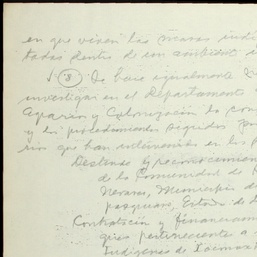 en que viven las masas indí
tadas dentro de un ambiente i
(8) Se hace igualmente
investigar en el Departamento
Agrario y Colonización la con
y los procedimientos seguidos
rios que han intervenido en los
Deslinde y reconocimien
de la Comunidad de
Municipio de
Estado de
Contratación y financiam
pertenecientes a
Indígenas de